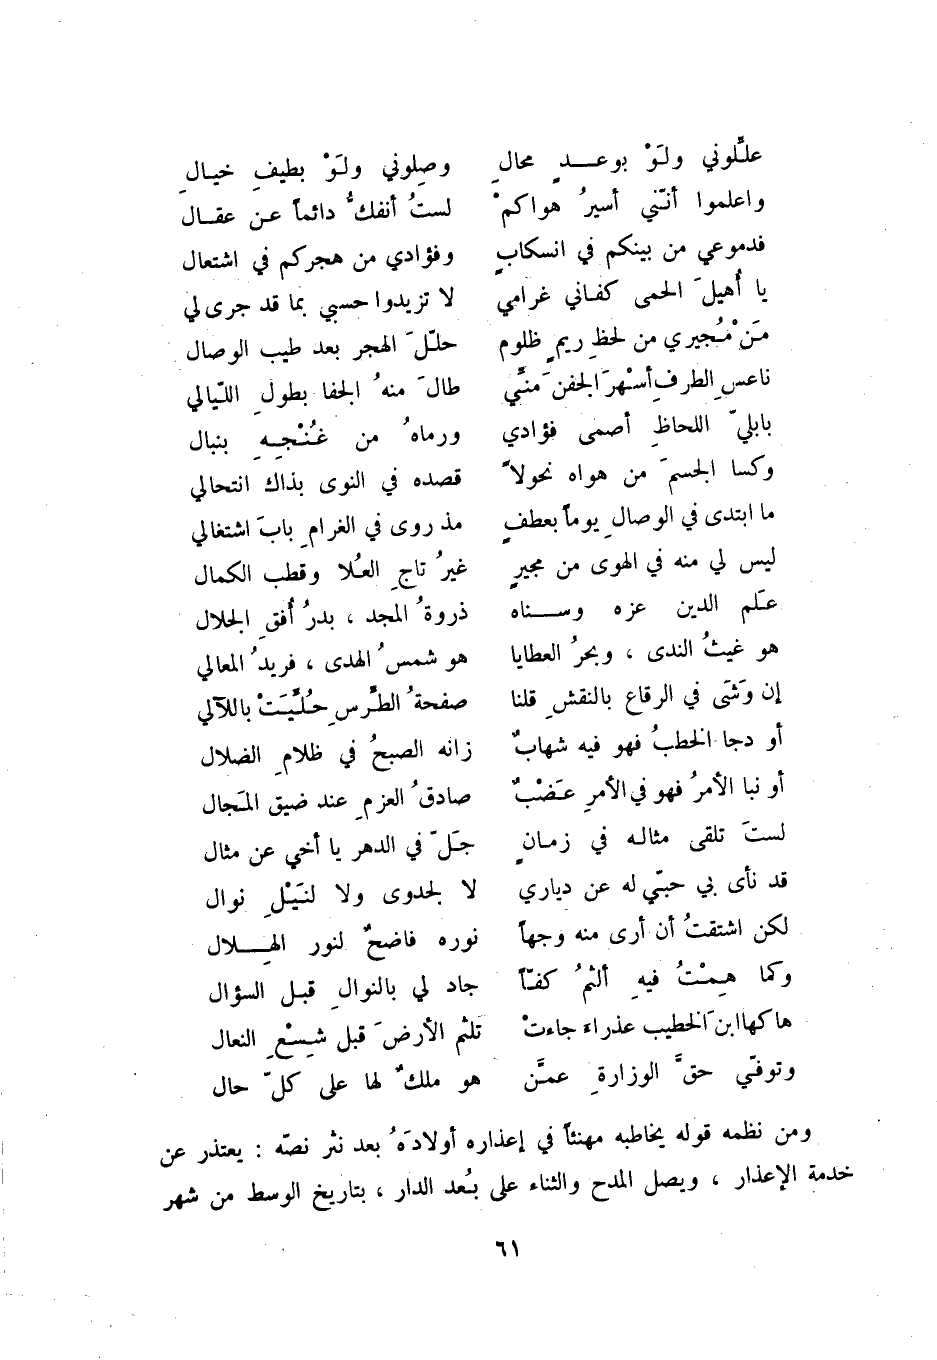 علّلوني ولَوْ بوعـــدٍ محالِ وصِلوني ولَوْ بطيفِ خيالِ
واعلموا أنّني أسيرُ هواكمْ لستُ أنفكُّ دائماً عن عقال
فدموعي من بينكم في انسكابٍ وفؤادي من هجركم في اشتعال
يا أُهيلَ الحمى كفاني غرامي لا تزيدوا حسبي بما قد جرى لي
مَنْ مُجيري من لحظِ ريمٍ ظلوم حلّلَ الهجر بعد طيب الوصال
ناعسِ الطرفِ أسْهرَ الجفنَ منّي طالَ منهُ الجفا بطولِ اللّيالي
بابليّ اللحاظِ أصمى فؤادي ورماهُ من غُنْجِهِ بنبال
وكسا الجسمَ من هواه نحولاً قصده في النوى بذاك انتحالي
ما ابتدى في الوصالِ يوماً بعطفٍ مذ روى في الغرامِ بابَ اشتغالي
ليس لي منه في الهوى من مجيرٍ غيرُ تاجِ العُلا وقطب الكمال
عَلم الدين عزه وســـناه ذروةُ المجد ، بدرُ أُفقِ الجلال
هو غيثُ الندى ، وبحرُ العطايا هو شمسُ الهدى ، فريدُ المعالي
إن وَشَى في الرقاع بالنقشِ قلنا صفحةُ الطِّرسِ حُلِّيَتْ باللآلي
أو دجا الخطبُ فهو فيه شهابٌ زانه الصبحُ في ظلامِ الضلال
أو نبا الأمرُ فهو في الأمرِ عَضْبٌ صادقُ العزمِ عند ضيق المَجال
لستَ تلقى مثاله في زمانٍ جَلّ في الدهر يا أخي عن مثال
قد نأى بي حبّي له عن دياري لا لجدوى ولا لنَيْلِ نوال
لكن اشتقتُ أن أرى منه وجهاً نوره فاضحٌ لنور الهـــلال
وكما هِمْتُ فيهِ ألثمُ كفّاً جاد لي بالنوالِ قبل السؤال
هاكها ابنَ الخطيب عذراء جاءتْ تلثم الأرضَ قبل شِسْعِ النعال
وتوفّي حقَّ الوزارةِ عمَّن هو ملكٌ لها على كلّ حال
ومن نظمه قوله يخاطبه مهنئاً في إعذاره أولادَهُ بعد نثر نصّه : يعتذر عن
خدمة الإعذار ، ويصل المدح والثناء على بُعد الدار ، بتاريخ الوسط من شهر
٦١